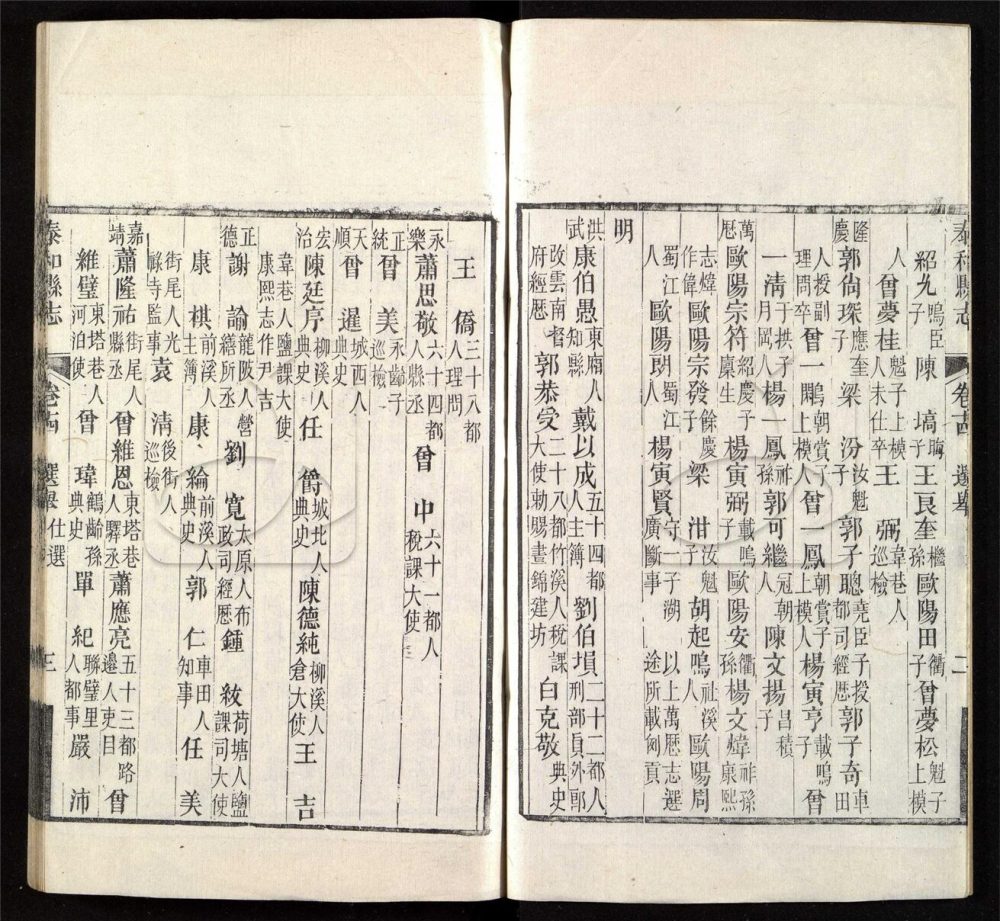 泰和縣志 卷十四 選舉 二
紹九鳴臣子 陳塙陶子 王良奎繼孫 歐陽田衢子 曾夢松魁子上模
人 曾夢桂魁子上模人未仕卒 王弼韋巷人巡檢
隆慶 郭尙琛應奎子 梁汾汝魁子 郭子聰堯臣子授都司經歷 郭子奇車田
人授副理問卒 曾一鵾朝賞子上模人 曾一鳳朝賞子上模人 楊寅亨載鳴子 曾
一淸于拱子月岡人 楊一鳳祚孫 郭可繼冠朝人 陳文揚昌積子
萬歷 歐陽宗符紹慶子廩生 楊寅弼載鳴子 歐陽安衢孫 楊文煒祚孫康熙
志煒作偉 歐陽宗發餘慶子 梁泔汝魁子 胡起鳴社溪人 歐陽周
蜀江人 歐陽朗蜀江人 楊寅賢守一子湖廣斷事 以上萬歷志選途所載例貢
明
洪武 康伯愚東廂人知縣 戴以成五十四都人主簿 劉伯塤二十二都人刑部員外郎
改雲南府經歷 郭恭受二十八都竹溪人稅課大使勅賜晝錦建坊 白克敬典史
王僑三十八都人理問
永樂 蕭思敬六十四都人縣丞 曾中六十一都人稅課大使
正統 曾美永齡子巡檢
天順 曾暹城西人典史
宏治 陳廷序柳溪人典史 任爵城北人典史 陳德純柳溪人倉大使 王吉
韋巷人鹽課大使康熙志作尹吉
正德 謝諭龍陂人營繕所丞 劉寬太原人布政司經歷 鍾紋荷塘人鹽課司大使
康棋前溪人主簿 康綸前溪人典史 郭仁車田人知事 任美
街尾人光祿寺監事 袁淸後街人巡檢
嘉靖 蕭隆祐街尾人縣丞 曾維恩東塔巷人驛丞 蕭應亮五十三都路邊人吏目 曾
維璧東塔巷人河泊使 曾瑋鶴齡孫典史 單紀聯璧里人都事 嚴沛
泰和縣志 卷十四 選舉 仕選 三